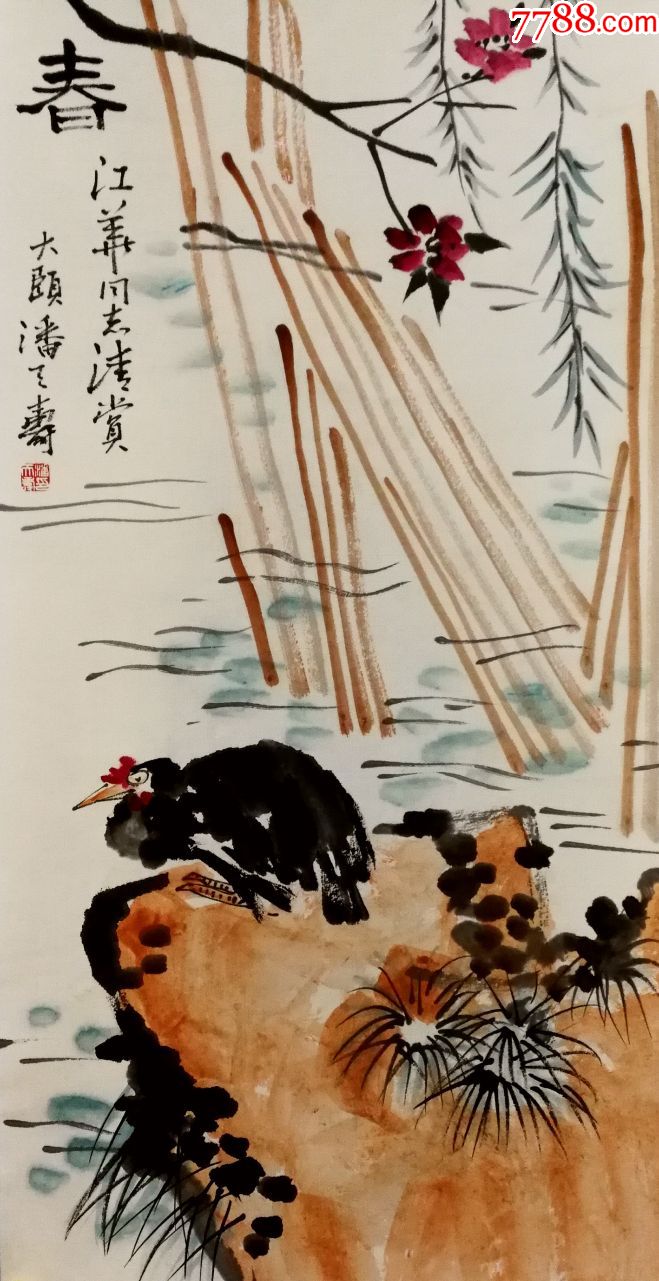 7788.com
春
江華同志清赏
大頤潘天壽